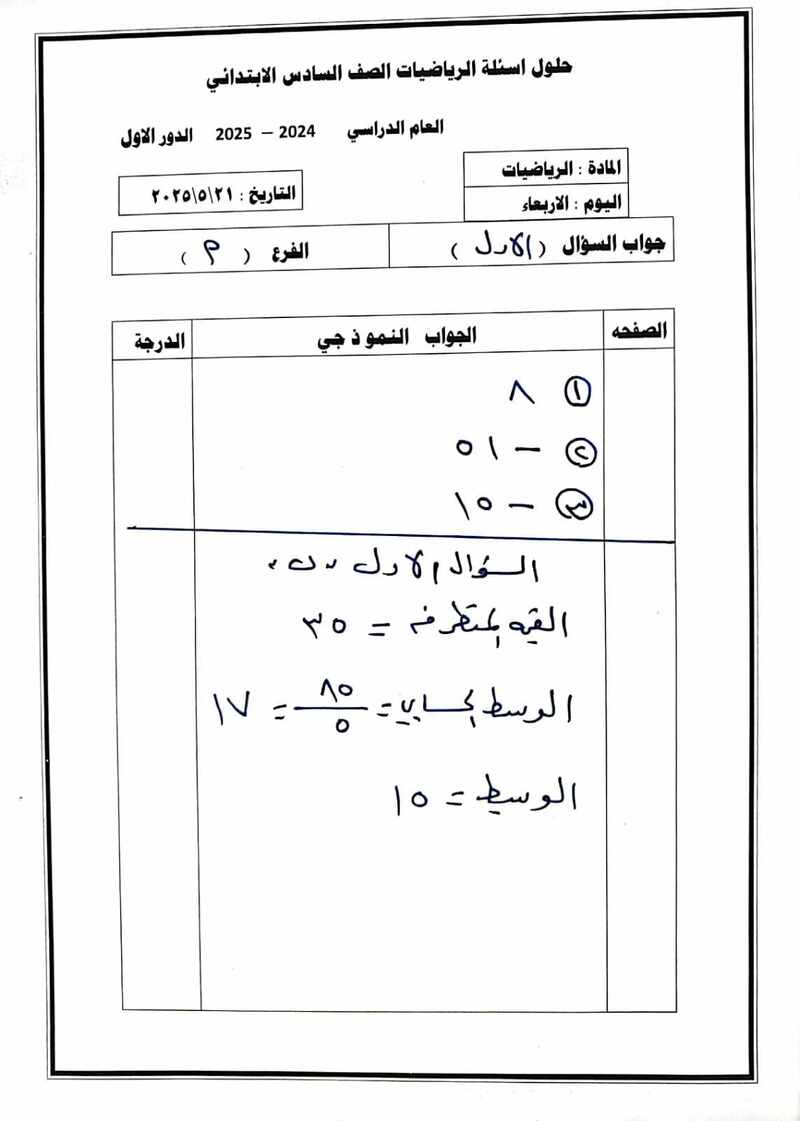 حلول اسئلة الرياضيات الصف السادس الابتدائي
العام الدراسي 2024 – 2025 الدور الاول
المادة : الرياضيات
اليوم : الاربعاء
التاريخ : ٢٠٢٥\٥\٢١
جواب السؤال ( الاول ) الفرع ( م )
الصفحه الجواب النموذجي الدرجة
① ٨
② – ٥١
③ – ١٥
السؤال الاول "ب"
القيمه المتطرفه = ٣٥
الوسط الحسابي = ٨٥/٥ = ١٧
الوسيط = ١٥